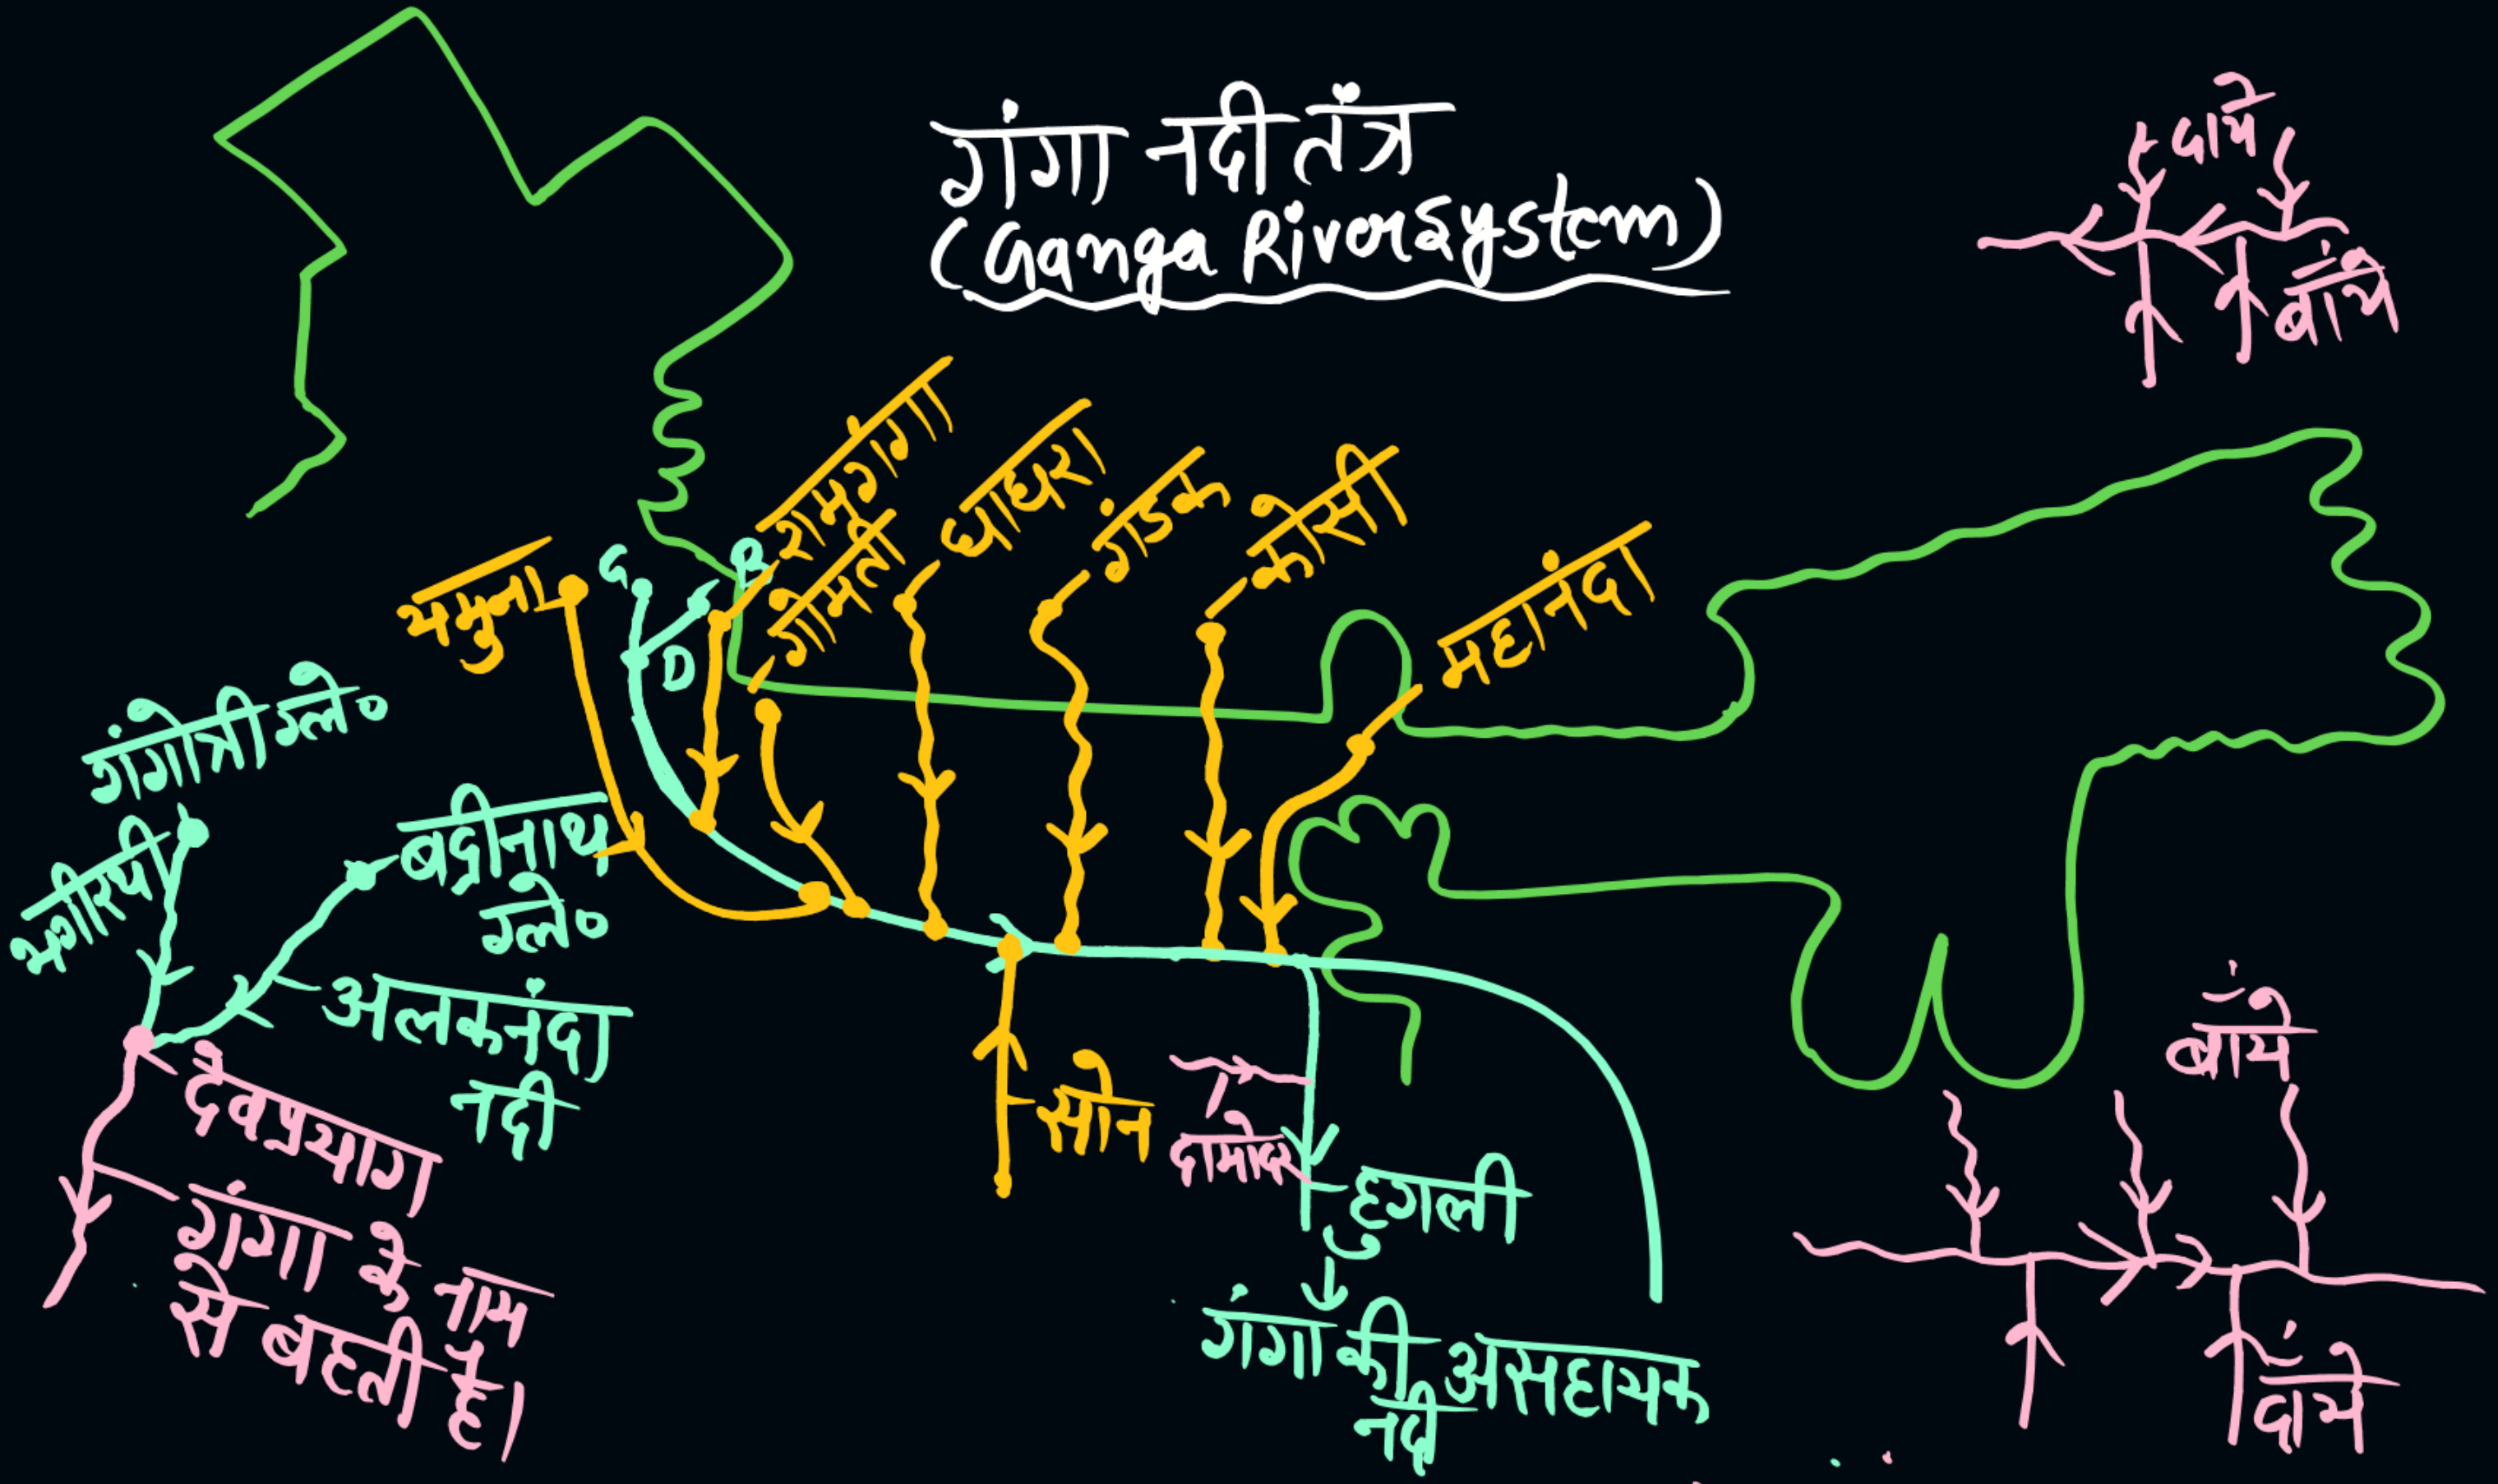 गंगा नदी तंत्र
(Ganga River System)
दायें
बांये
रामगंगा
गोमती
घाघरा
गंडक
कोसी
महानंदा
यमुना
G
B
D
गंगोत्री ग्ले०
भागीरथी
बद्रीनाथ
ग्ले०
अलकनंदा
नदी
देवप्रयाग
गंगा के नाम
से बहती है।
सोन
दामोदर
हुगली
गंगा की असहायक
नदी
बांये
दांये